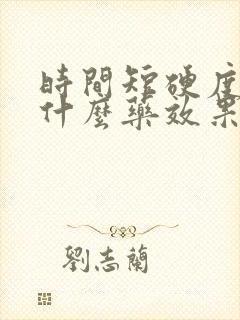 時間短硬度
什麼藥效果
劉志蘭